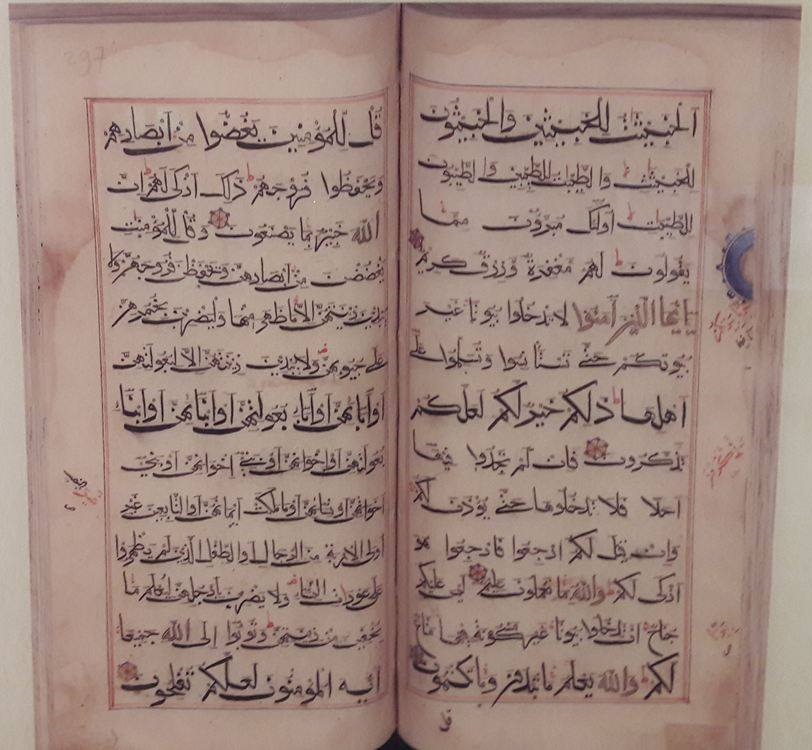 الخبيثت للخبيثين والخبيثون
للخبيثت والطيبت للطيبين والطيبون
للطيبت اولئك مبرؤن مما
يقولون لهم مغفرة ورزق كريم
يايها الذين آمنوا لا تدخلوا بيوتا غير
بيوتكم حتى تستأنسوا وتسلموا على
اهلها ذلكم خير لكم لعلكم
تذكرون فان لم تجدوا فيها
احدا فلا تدخلوها حتى يؤذن لكم
وان قيل لكم ارجعوا فارجعوا هو
ازكى لكم والله بما تعملون عليم ليس عليكم
جناح ان تدخلوا بيوتا غير مسكونة فيها متاع
لكم والله يعلم ما تبدون وما تكتمون
قل للمؤمنين يغضوا من ابصارهم
ويحفظوا فروجهم ذلك ازكى لهم ان
الله خبير بما يصنعون وقل للمؤمنت
يغضضن من ابصارهن ويحفظن فروجهن ولا
يبدين زينتهن الا ما ظهر منها وليضربن بخمرهن
على جيوبهن ولا يبدين زينتهن الا لبعولتهن
او آبائهن او آباء بعولتهن او ابنائهن او ابناء
بعولتهن او اخوانهن او بني اخوانهن او بني
اخواتهن او نسائهن او ما ملكت ايمانهن او التابعين غير
اولى الاربة من الرجال او الطفل الذين لم يظهروا
على عورات النساء ولا يضربن بارجلهن ليعلم ما
يخفين من زينتهن وتوبوا الى الله جميعا
ايه المؤمنون لعلكم تفلحون